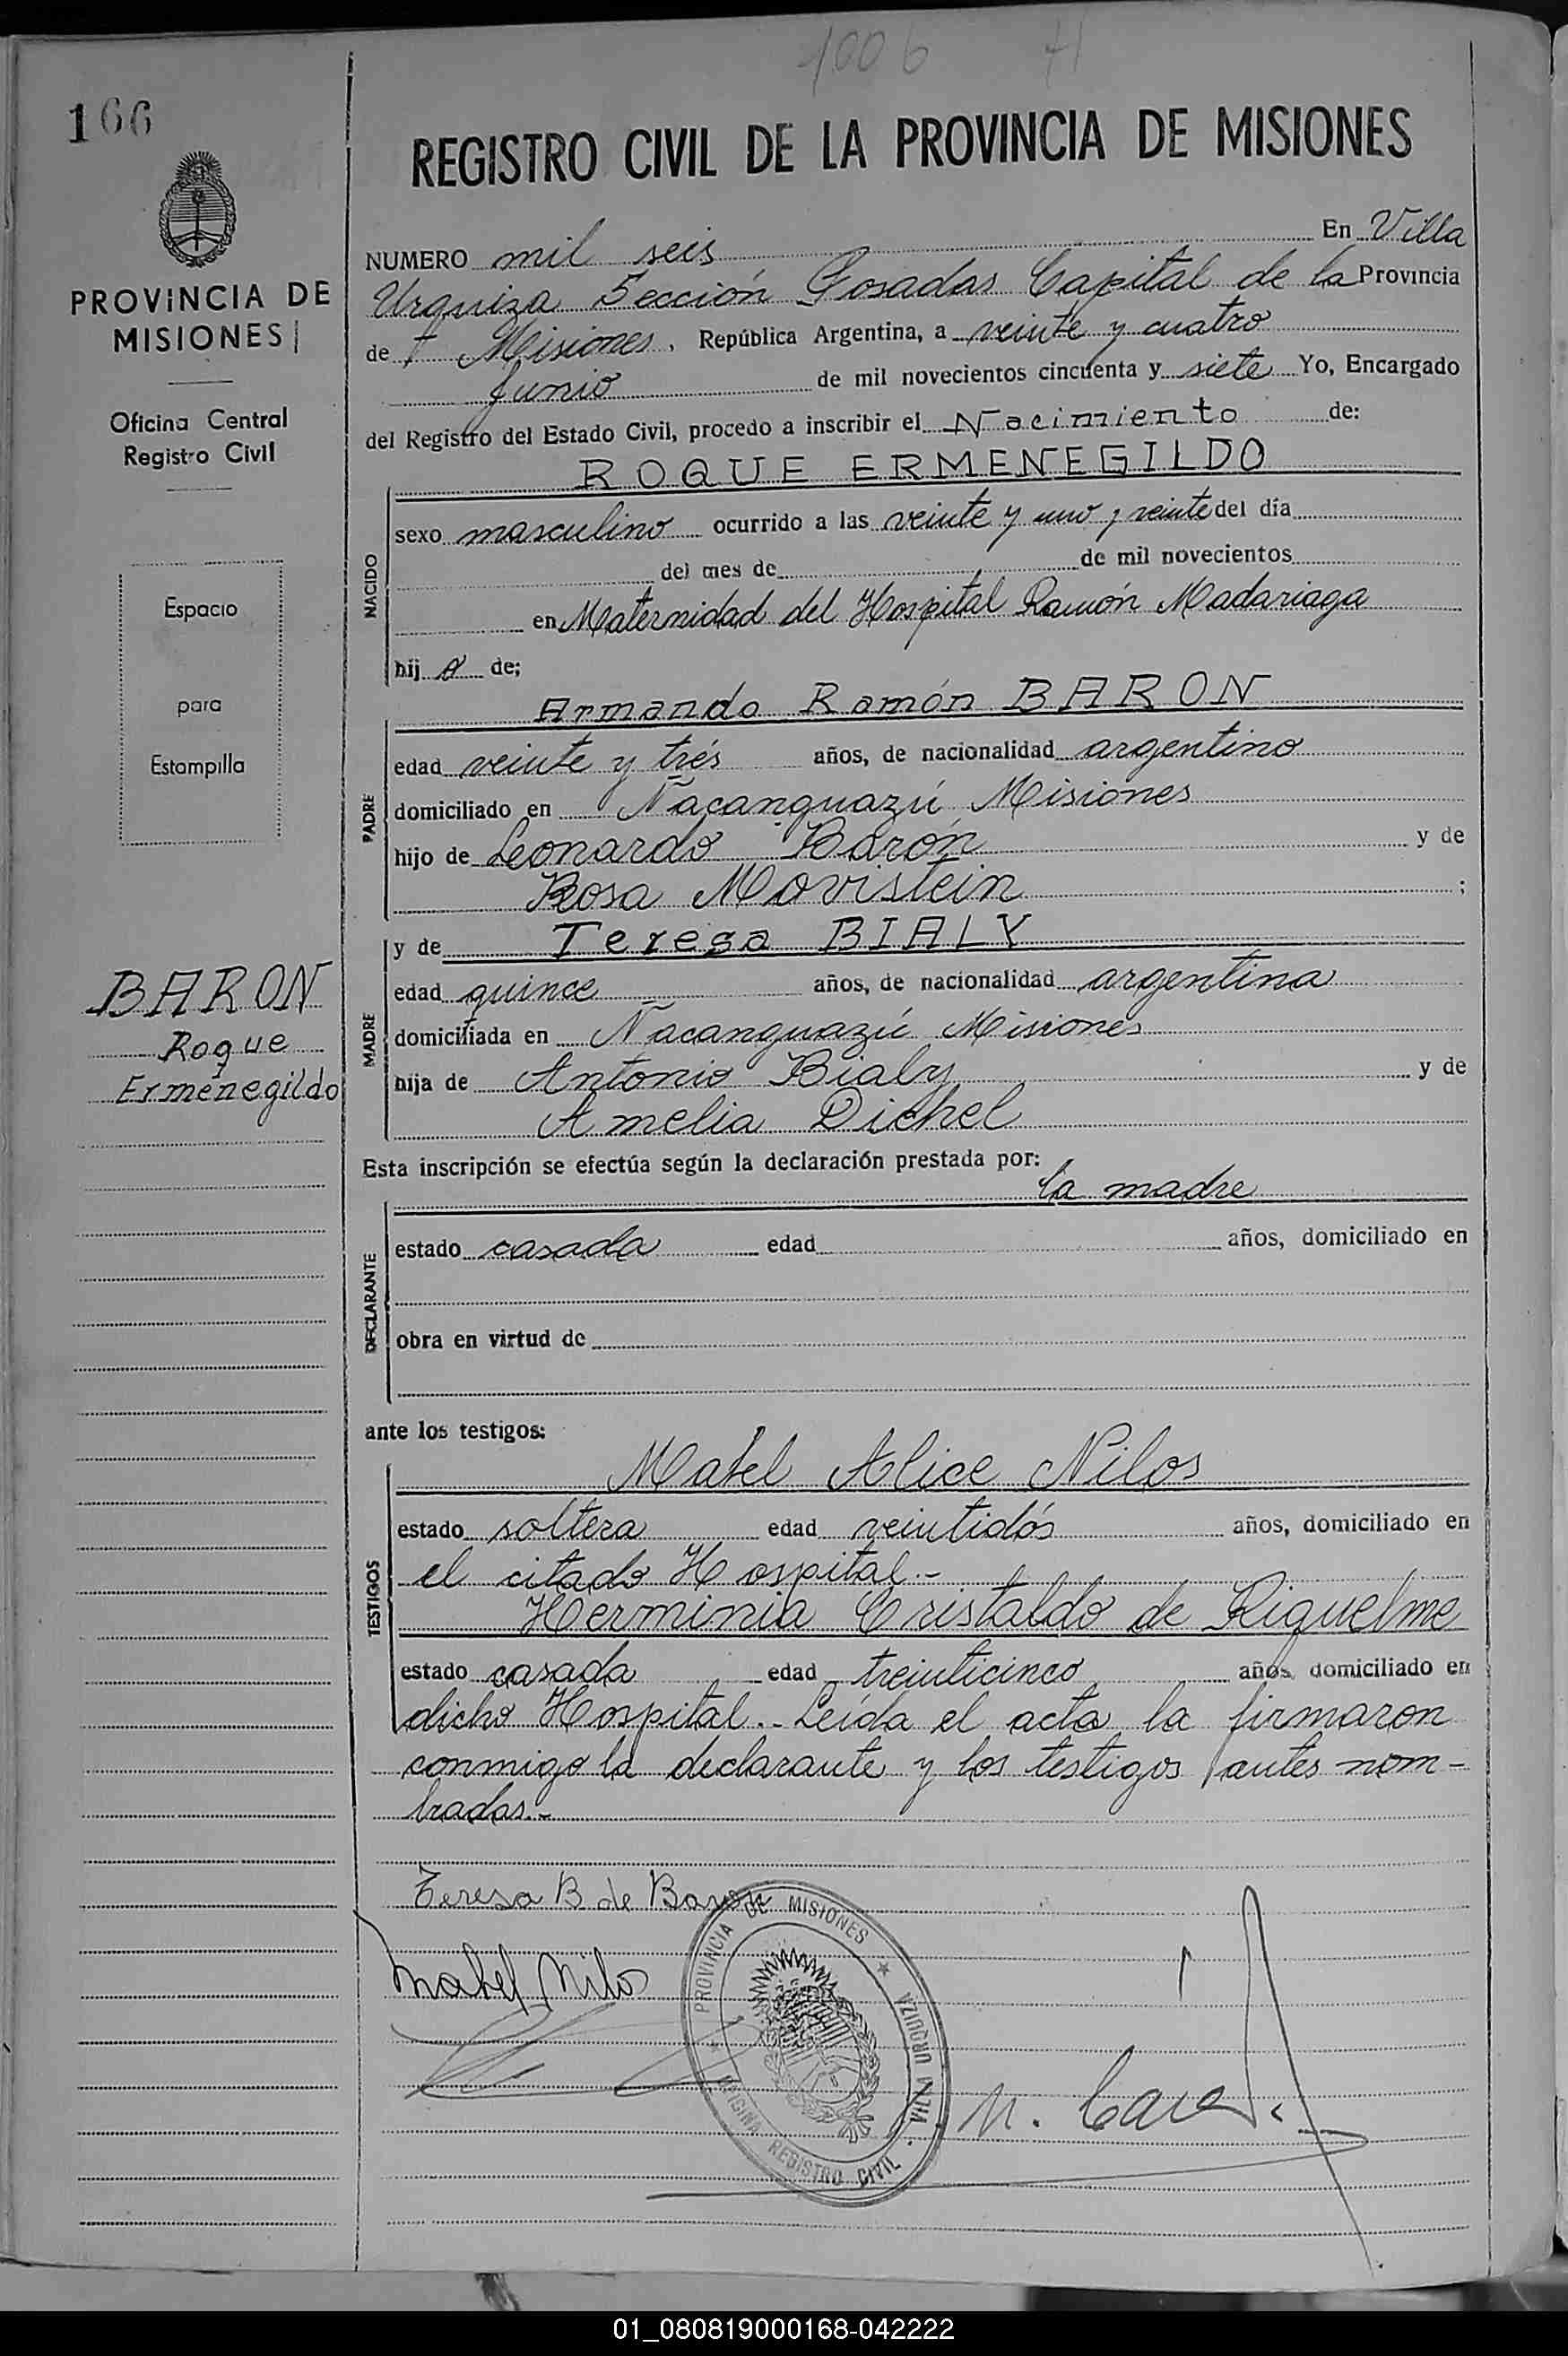 1006
166
REGISTRO CIVIL DE LA PROVINCIA DE MISIONES
PROVINCIA DE
MISIONES
Oficina Central
Registro Civil
Espacio
para
Estampilla
BARON
Roque
Ermenegildo
NUMERO mil seis En Villa
Urquiza Sección Posadas Capital de la Provincia
de Misiones, República Argentina, a veinte y cuatro
Junio de mil novecientos cincuenta y siete Yo, Encargado
del Registro del Estado Civil, procedo a inscribir el Nacimiento de:
ROQUE ERMENEGILDO
NACIDO
sexo masculino ocurrido a las veinte y uno y veinte del día
del mes de de mil novecientos
en Maternidad del Hospital Ramón Madariaga
hij o de;
Armando Ramón BARON
PADRE
edad veinte y trés años, de nacionalidad argentino
domiciliado en Ñacanguazú Misiones
hijo de Leonardo Barón y de
Rosa Movistein ;
y de Teresa BIALY
MADRE
edad quince años, de nacionalidad argentina
domiciliada en Ñacanguazú Misiones
hija de Antonio Bialy y de
Amelia Dichel
Esta inscripción se efectúa según la declaración prestada por:
la madre
DECLARANTE
estado casada edad años, domiciliado en
obra en virtud de
ante los testigos:
Mabel Alice Nilos
TESTIGOS
estado soltera edad veintidós años, domiciliado en
el citado Hospital.-
Herminia Cristaldo de Riquelme
estado casada edad treinticinco años, domiciliado en
dicho Hospital.- Leída el acta la firmaron
conmigo la declarante y los testigos antes nom-
bradas.-
Teresa B de Baron
Mabel Nilos
PROVINCIA DE MISIONES
OFICINA REGISTRO CIVIL
VILLA URQUIZA
01_080819000168-042222